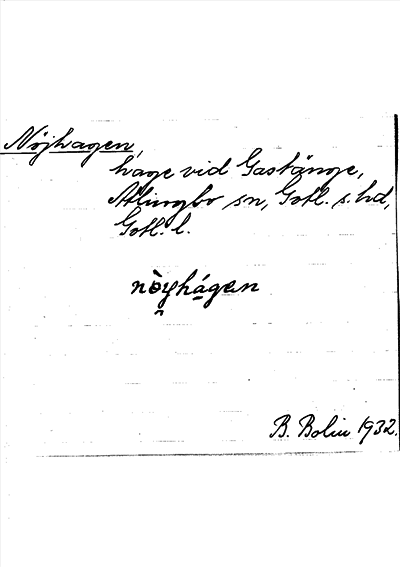 Nöjhagen,
hage vid Gastänge,
Atlingbo sn, Gotl. s. hd,
Gotl. l.
nòyhágen
B. Bolin 1932.